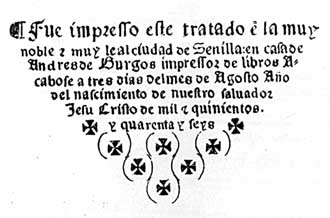 ¶ Fue impresso este tratado ẽ la muy
noble ⁊ muy leal ciudad de Seuilla: en casa de
Andres de Burgos impressor de libros A-
cabose a tres dias del mes de Agosto Año
del nascimiento de nuestro saluador
Jesu Cristo de mil ⁊ quinientos.
y quarenta y seys